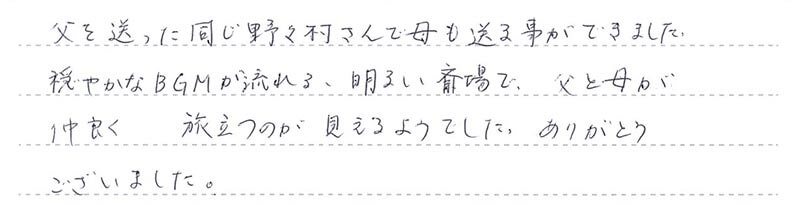 父を送った同じ野々村さんで母も送る事ができました.
穏やかなBGMが流れる、明るい斎場で、父と母が
仲良く 旅立つのが見えるようでした。ありがとう
ございました。